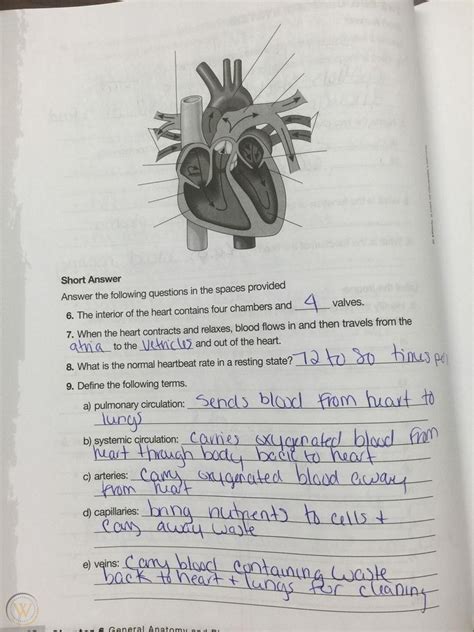 Short Answer
Answer the following questions in the spaces provided
6. The interior of the heart contains four chambers and 4 valves.
7. When the heart contracts and relaxes, blood flows in and then travels from the
atria to the Vetricles and out of the heart.
8. What is the normal heartbeat rate in a resting state? 72 to 80 times per
9. Define the following terms.
a) pulmonary circulation: Sends blood from heart to
lungs
b) systemic circulation: Carries oxygenated blood from
heart through body back to heart
c) arteries: Carry oxygenated blood away
from heart
d) capillaries: bring nutrients to cells +
carry away waste
e) veins: Carry blood containing waste
back to heart + lungs for cleaning
W
General Anatomy and